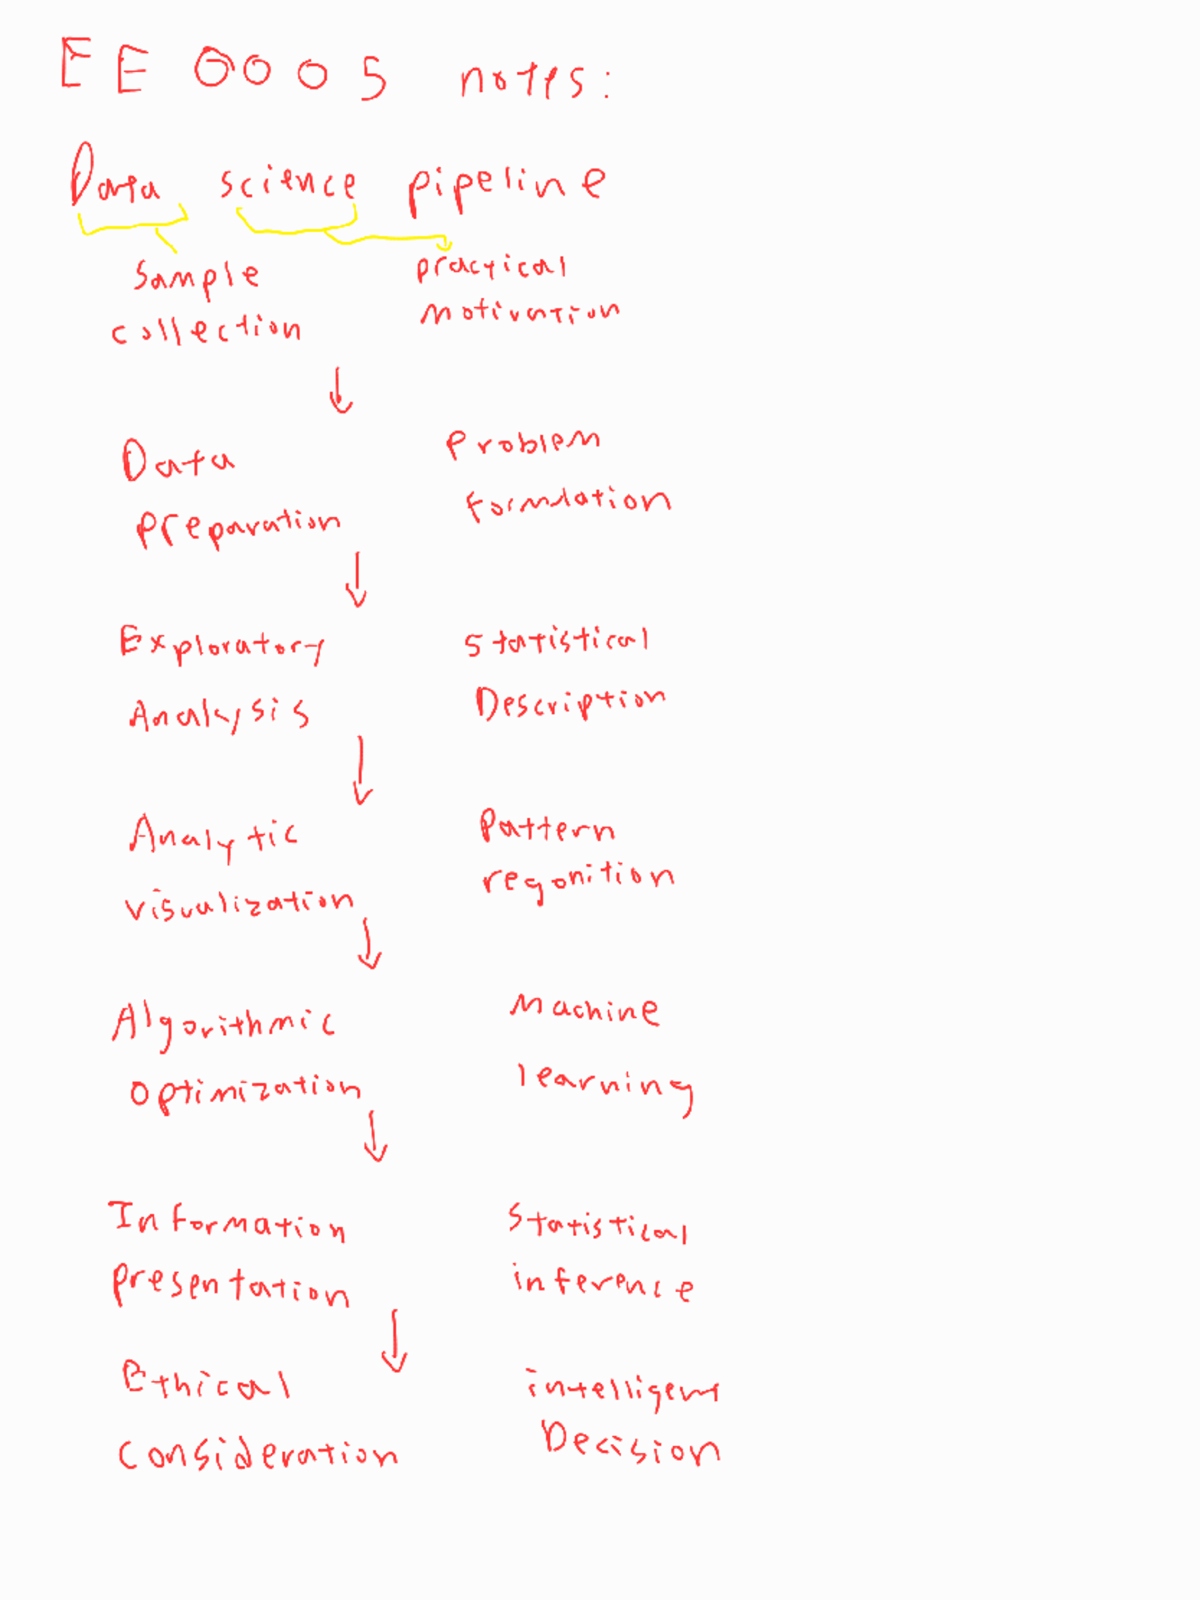 EE 0005 notes:
Data science pipeline
Sample practical
collection motivation
Data Problem
preparation formulation
Exploratory Statistical
Analysis Description
Analytic Pattern
visualization regonition
Algorithmic Machine
optimization learning
Information Statistical
presentation inference
Ethical intelligent
consideration Decision